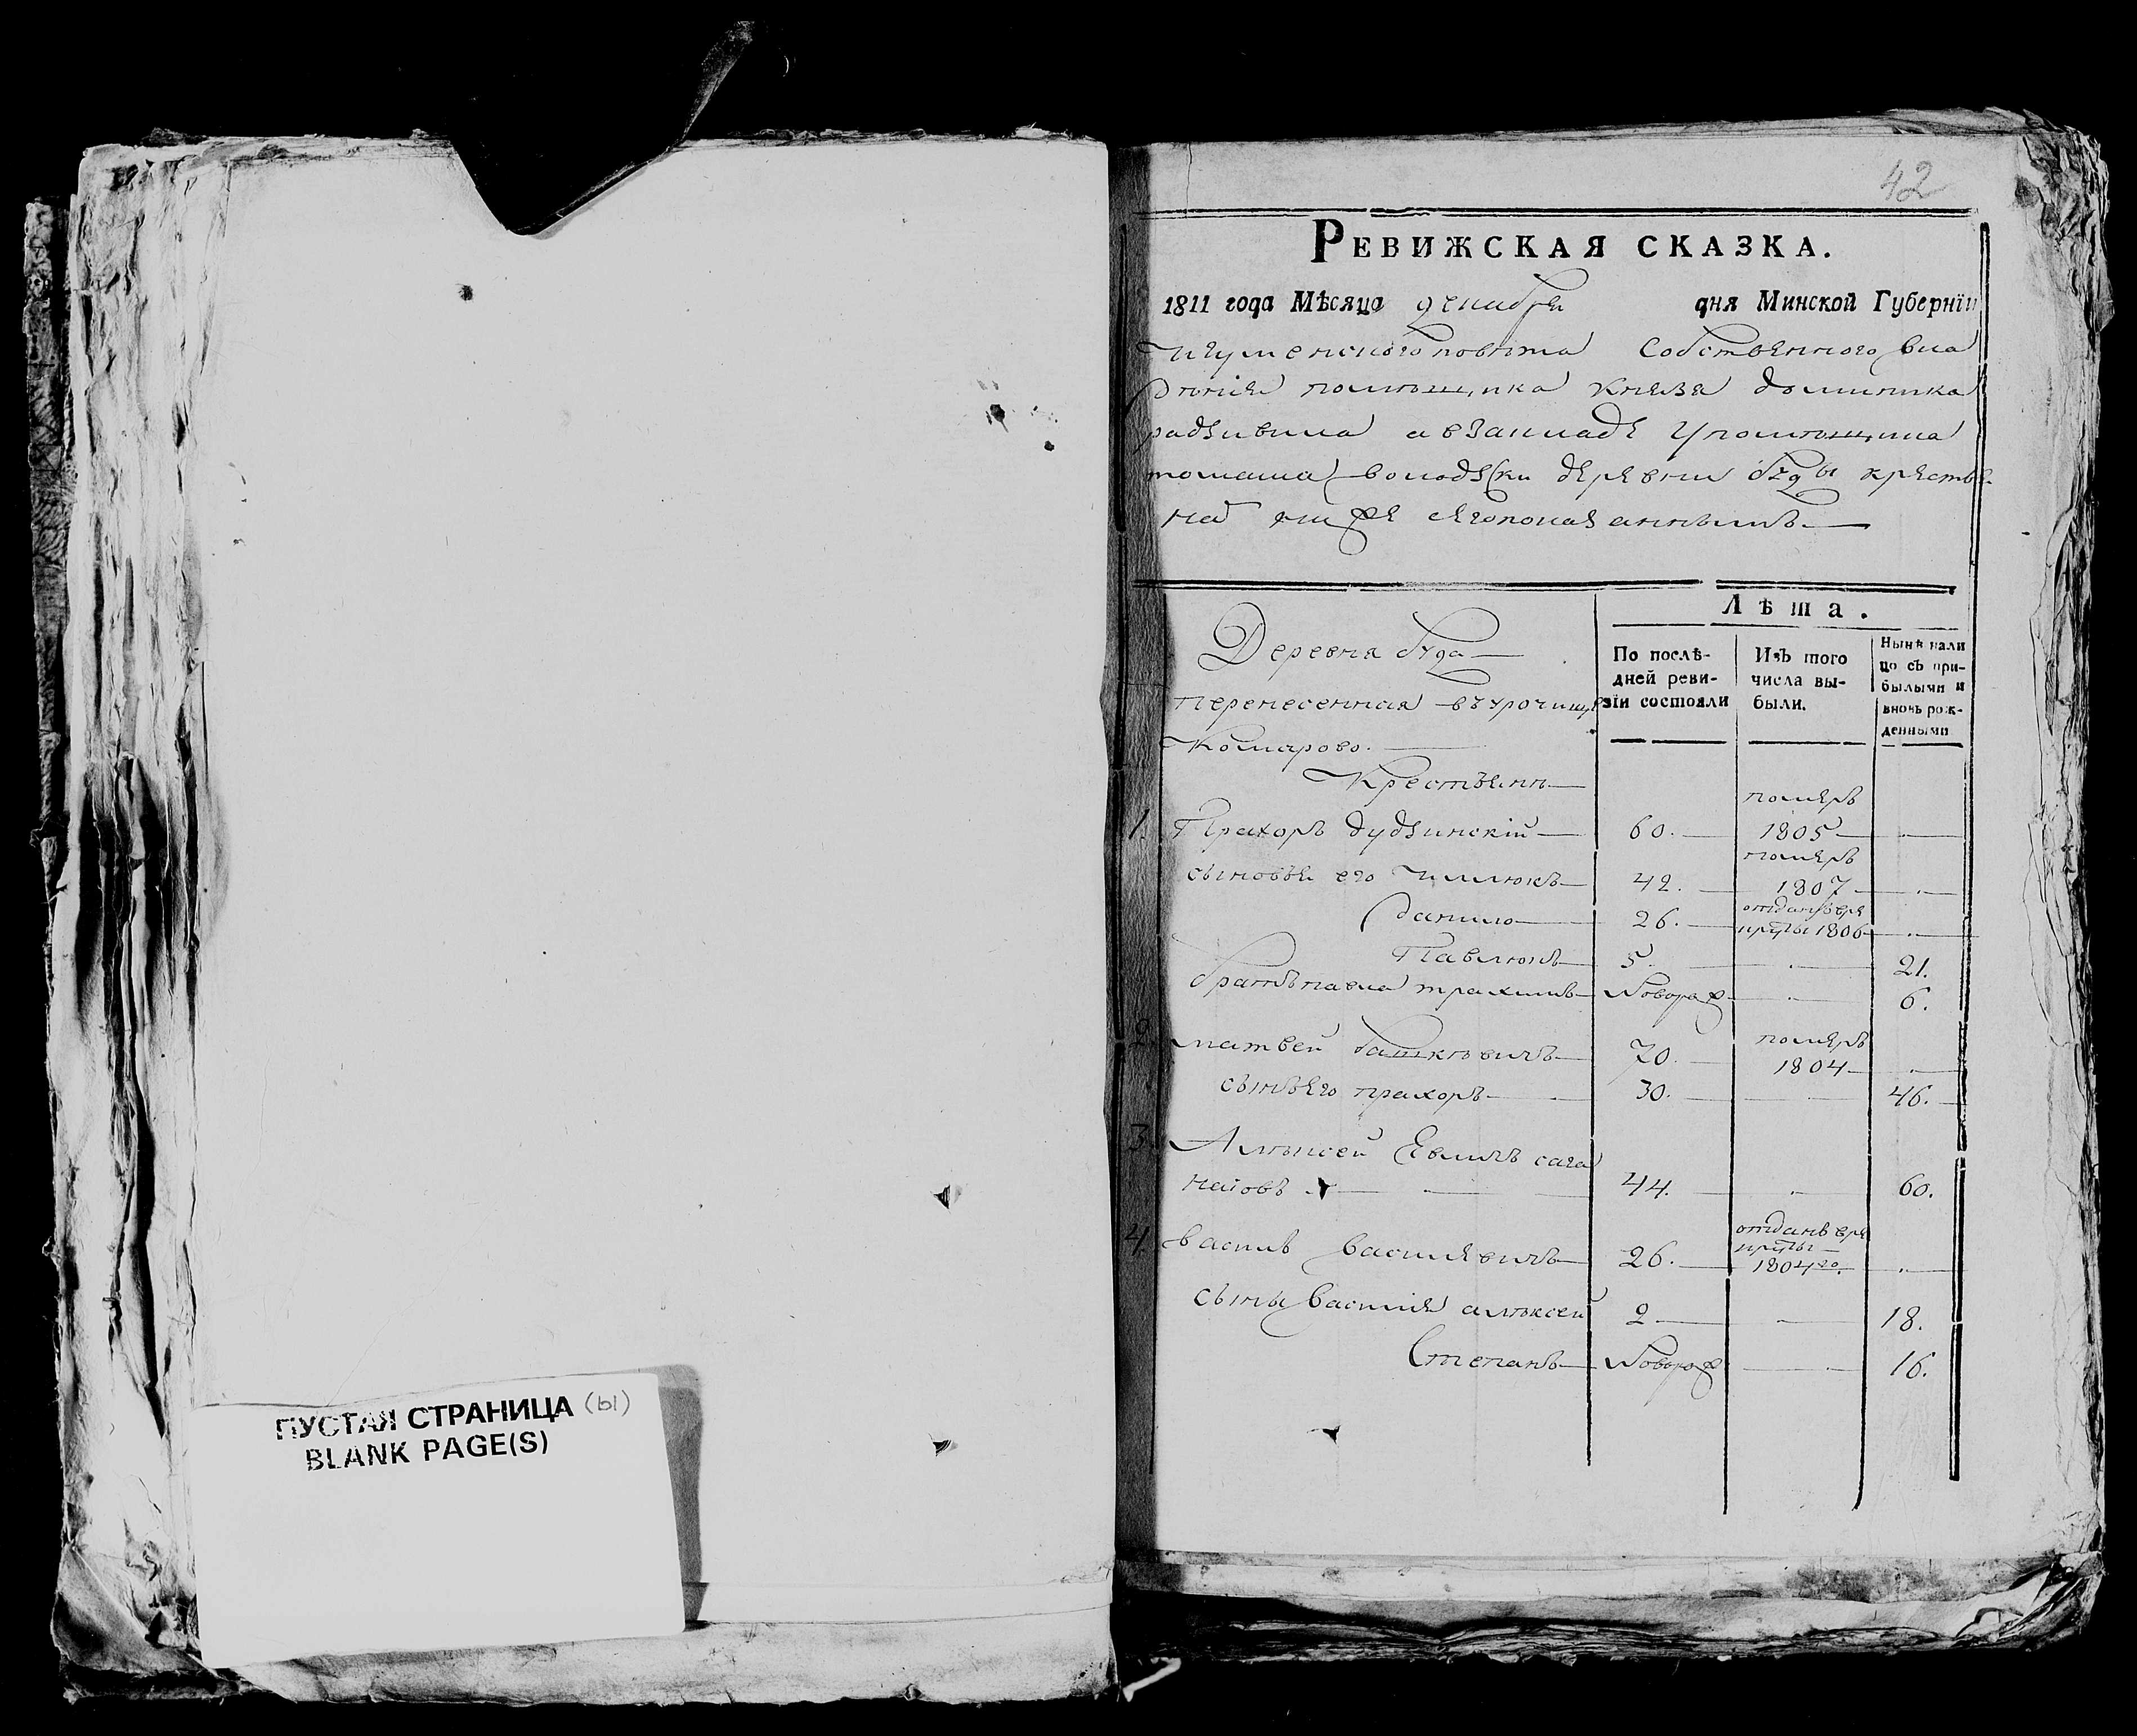 ПУСТАЯ СТРАНИЦА (ы)
BLANK PAGE(S)
42
РЕВИЖСКАЯ СКАЗКА.
1811 года Мѣсяца декабря дня Минской Губерніи
игуменского повѣта собственного вла
дѣнія помѣщика князя доминика
радзивила а в закладѣ у помѣщика
томаша володзки деревни буды крестья
на
Деревня буда
перенесенная въ урочище
Комарово.
Крестьянѣ
Лѣта.
По послѣ-
дней реви-
зіи состояли
Изъ того
числа вы-
были.
Нынѣ нали
цо съ при-
былыми и
вновь рож-
денными
померъ
1. Прахоръ дудзинскій 60. 1805
померъ
сыновья его 42. 1807
данило 26. отданъ в ре
круты 1806
Павлюкъ 5 21.
братъ павла Новорож 6.
2. матвей 70. померъ
1804
сынъ его прахоръ 30. 46.
3. Алѣксей сага
44. 60.
4. василь василевичъ 26. отданъ в ре
круты
1804го.
сыны василія алѣксей 2 18.
Степанъ Новорож 16.